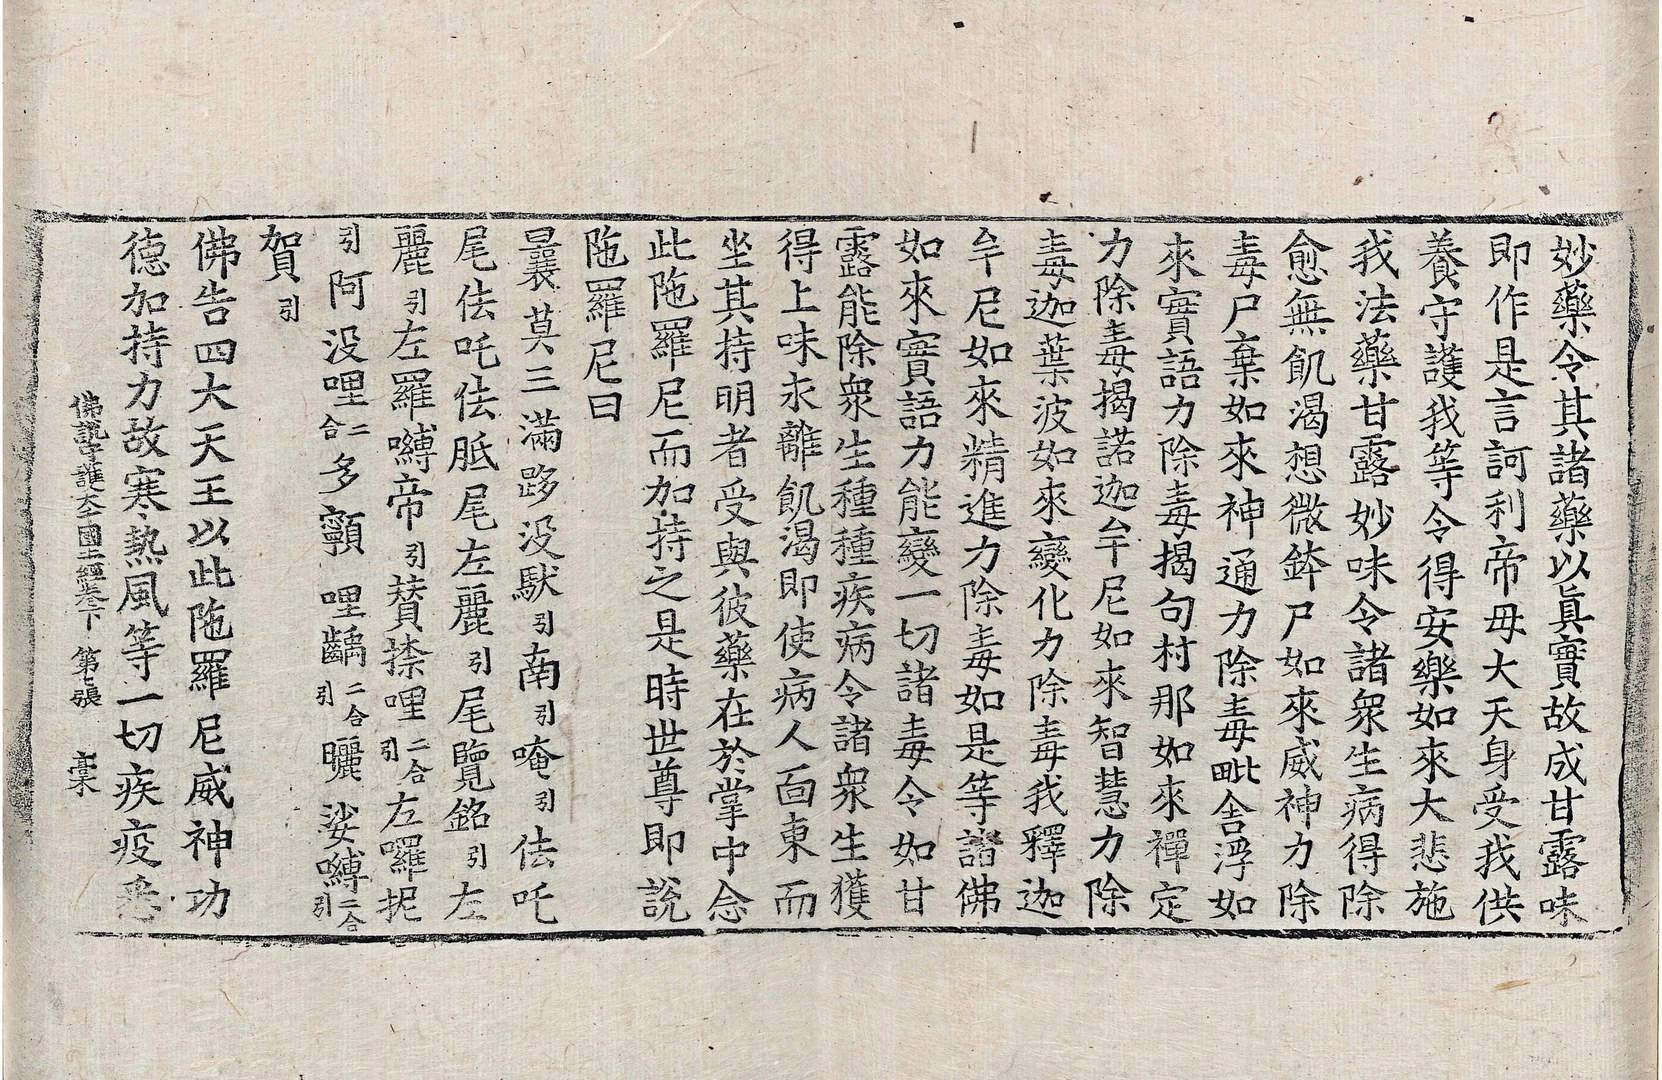 妙藥令其諸藥以眞實故成甘露味
即作是言訶利帝母大天身受我供
養守護我等令得安樂如來大悲施
我法藥甘露妙味令諸衆生病得除
愈無飢渴想微鉢尸如來威神力除
毒尸棄如來神通力除毒毗舍浮如
來實語力除毒揭句村那如來禪定
力除毒揭諾迦牟尼如來智慧力除
毒迦葉波如來變化力除毒我釋迦
牟尼如來精進力除毒如是等諸佛
如來實語力能變一切諸毒令如甘
露能除衆生種種疾病令諸衆生獲
得上味永離飢渴即使病人面東而
坐其持明者受與彼藥在於掌中念
此陁羅尼而加持之是時世尊即說
陁羅尼曰
曩莫三滿跢没馱引南引唵引佉吒
尾佉吒佉胝尾左麗引尾覽銘引左
麗引左羅嚩帝引賛捺哩二合引左囉抳
引阿没哩二合多𩕳哩齲二合引囇娑嚩二合引
賀引
佛告四大天王以此陁羅尼威神功
德加持力故寒熱風等一切疾疫悉
佛說守護大千國土經卷下 第七張 槀